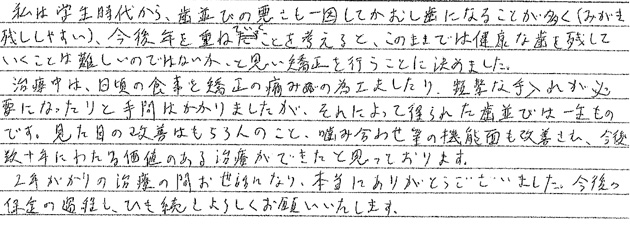 私は学生時代から、歯並びの悪さも一因してかむし歯になることが多く(みがき
残ししやすい)、今後年を重ねることを考えると、このままでは健康な歯を残して
いくことは難しいのではないか、と思い矯正を行うことに決めました。
治療中は、日頃の食事を矯正の痛みの為工夫したり、頻繁な手入れが必
要になったりと手間はかかりましたが、それによって得られた歯並びは一生もの
です。見た目の改善はもちろんのこと、噛み合わせ等の機能面も改善され、今後
数十年にわたる価値のある治療ができたと思っております。
2年がかりの治療の間お世話になり、本当にありがとうございました。今後の
保定の過程も、ひき続きよろしくお願いいたします。